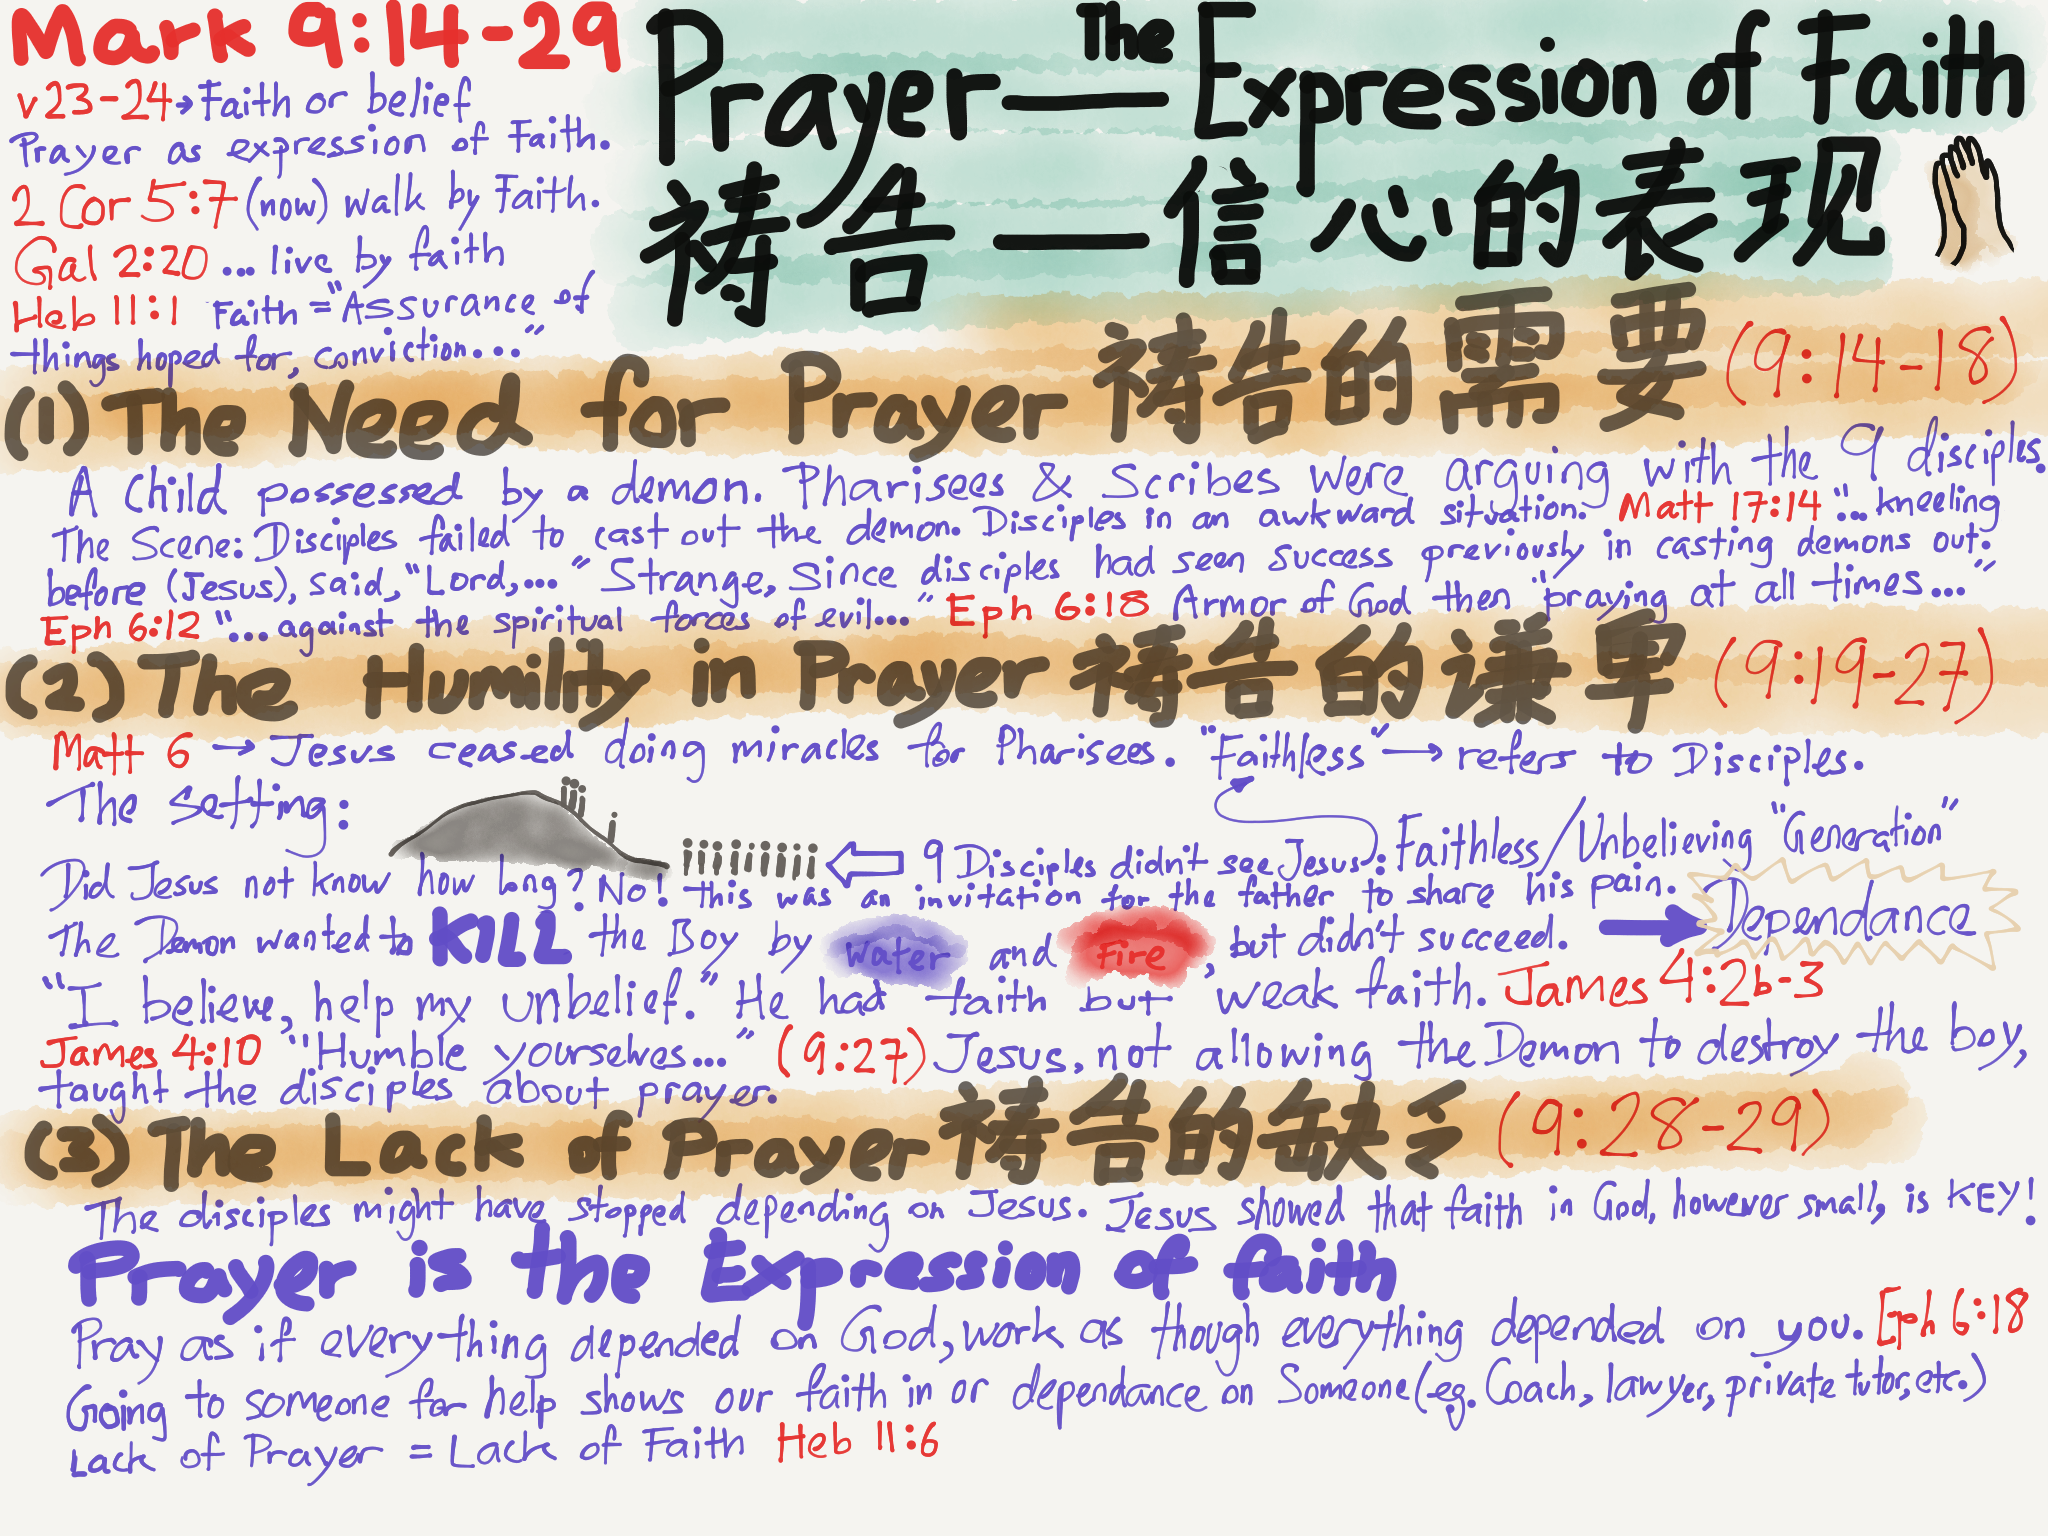 Mark 9:14-29
v23-24→Faith or belief
Prayer as expression of Faith.
2 Cor 5:7 (now) walk by Faith.
Gal 2:20 ... live by faith
Heb 11:1 Faith = "Assurance of
things hoped for, conviction..."
Prayer — The Expression of Faith
祷告 — 信心的表现
(1) The Need for Prayer 祷告的需要 (9:14-18)
A Child possessed by a demon. Pharisees & Scribes were arguing with the 9 disciples.
The Scene: Disciples failed to cast out the demon. Disciples in an awkward situation. Matt 17:14 "...kneeling
before (Jesus), said, "Lord,..." Strange, since disciples had seen success previously in casting demons out.
Eph 6:12 "...against the spiritual forces of evil..." Eph 6:18 Armor of God then "praying at all times..."
(2) The Humility in Prayer 祷告的谦卑 (9:19-27)
Matt 6 → Jesus ceased doing miracles for Pharisees. "Faithless" → refers to Disciples.
The Setting:
9 Disciples didnt see Jesus: Faithless/Unbelieving "Generation"
Did Jesus not know how long? No! this was an invitation for the father to share his pain.
The Demon wanted to KILL the Boy by Water and Fire, but didn't succeed. → Dependance
"I believe, help my unbelief." He had faith but weak faith. James 4:2b-3
James 4:10 "Humble yourselves..." (9:27) Jesus, not allowing the Demon to destroy the boy,
taught the disciples about prayer.
(3) The Lack of Prayer 祷告的缺乏 (9:28-29)
The disciples might have stopped depending on Jesus. Jesus showed that faith in God, however small, is KEY!
Prayer is the Expression of faith
Pray as if everything depended on God, work as though everything depended on you. Eph 6:18
Going to someone for help shows our faith in or dependance on Someone (eg. Coach, lawyer, private tutor, etc.)
Lack of Prayer = Lack of Faith Heb 11:6